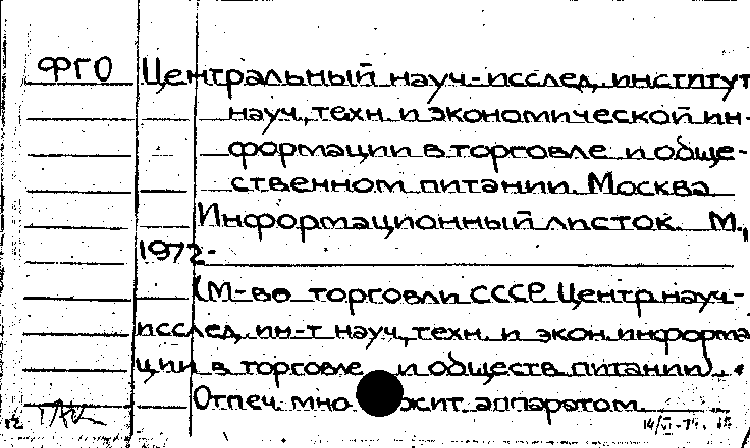 ФГО Центральный науч-исслед. институт
науч., техн. и экономической ин-
формации в торговле и обще-
ственном питании. Москва
Информационный листок. М.,
1972-
(М-во торговли СССР. Центр. науч-
исслед. ин-т науч., техн. и экон. информа
ции в торговле и обществ. питании).
Отпеч. мно жит. аппаратом.